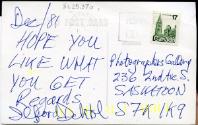 Dec/81
HOPE YOU
LIKE WHAT
YOU GET.
Regards
17
Photographers Gallery
236 2nd Ave S.
SASKATOON
S7K 1K9